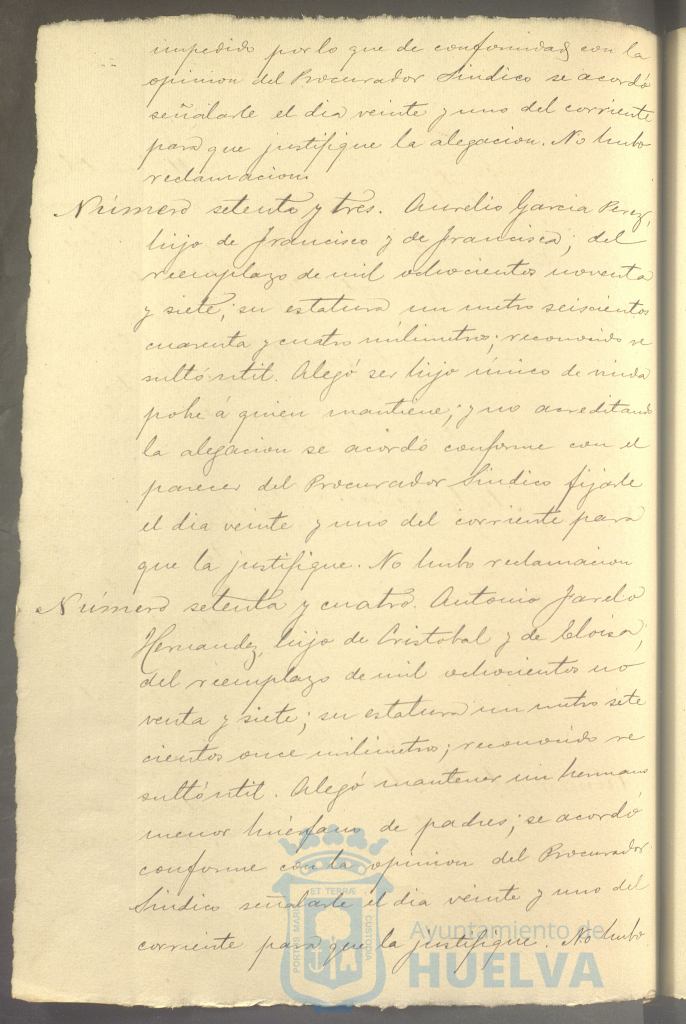 impedido por lo que de conformidad con la
opinion del Procurador Sindico se acordó
señalarle el dia veinte y uno del corriente
para que justifique la alegacion. No hubo
reclamacion.
Número setenta y tres. Aurelio Garcia Perez,
hijo de Francisco y de Francisca; del
reemplazo de mil ochocientos noventa
y siete; su estatura un metro seiscientos
cuarenta y cuatro milimetros; reconocido re
sultó útil. Alegó ser hijo único de viuda
pobre á quien mantiene; y no acreditando
la alegacion se acordó conforme con el
parecer del Procurador Sindico fijarle
el dia veinte y uno del corriente para
que la justifique. No hubo reclamacion
Número setenta y cuatro. Antonio
Hernandez, hijo de Cristobal y de Eloisa;
del reemplazo de mil ochocientos no
venta y siete; su estatura un metro sete
cientos once milimetros; reconocido re
sultó útil. Alegó mantener un hermano
menor huérfano de padres; se acordó
conforme con la opinion del Procurador
Sindico señalarle el dia veinte y uno del
corriente para que la justifique. No hubo
PORTUS MARIS ET TERRÆ CUSTODIA
Ayuntamiento de
HUELVA